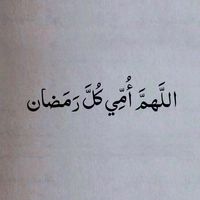 اللَّهمَّ أُمِّي كُلَّ رَمَضان